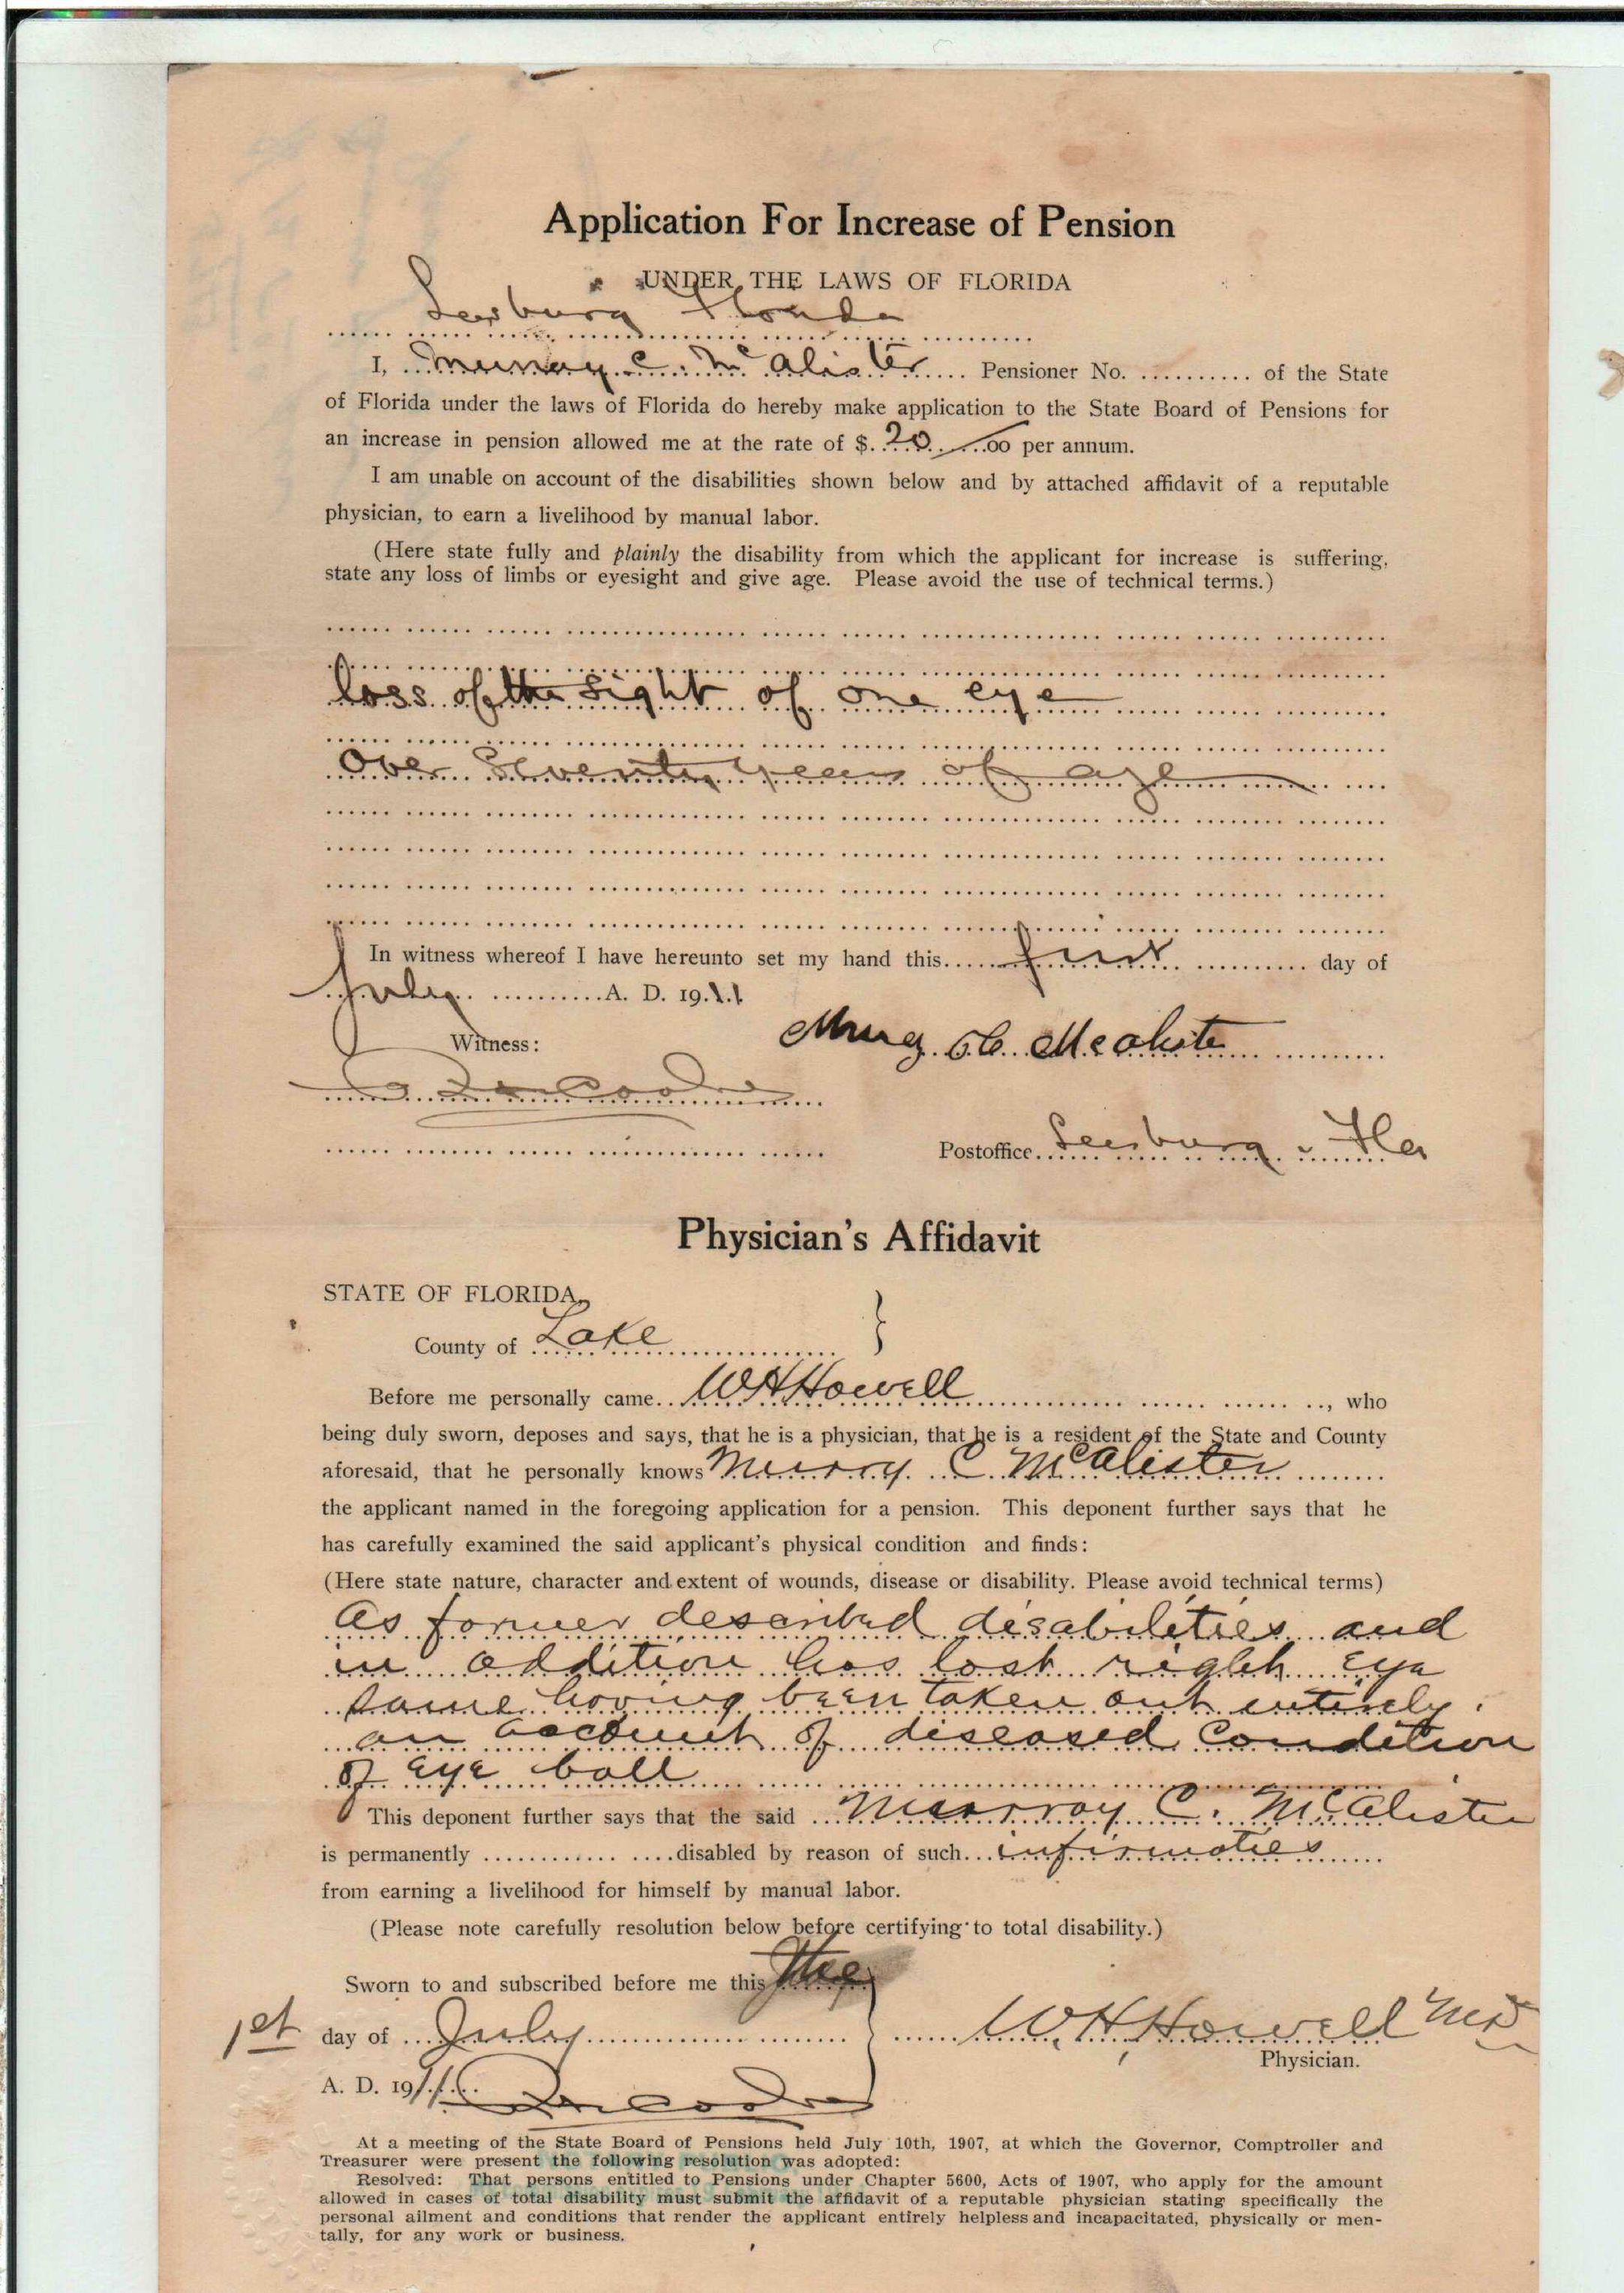 Application For Increase of Pension
UNDER THE LAWS OF FLORIDA
Leesburg Florida
I, Murray C. McAlister Pensioner No. .......... of the State
of Florida under the laws of Florida do hereby make application to the State Board of Pensions for
an increase in pension allowed me at the rate of $ 20 00 per annum.
I am unable on account of the disabilities shown below and by attached affidavit of a reputable
physician, to earn a livelihood by manual labor.
(Here state fully and plainly the disability from which the applicant for increase is suffering,
state any loss of limbs or eyesight and give age. Please avoid the use of technical terms.)
loss of the sight of one eye
Over Seventy years of age
In witness whereof I have hereunto set my hand this first day of
July A. D. 1911
Witness:
C McAlister
Postoffice Leesburg Fla
Physician's Affidavit
STATE OF FLORIDA,
County of Lake }
Before me personally came W H Howell, who
being duly sworn, deposes and says, that he is a physician, that he is a resident of the State and County
aforesaid, that he personally knows Murray C. McAlister
the applicant named in the foregoing application for a pension. This deponent further says that he
has carefully examined the said applicant's physical condition and finds:
(Here state nature, character and extent of wounds, disease or disability. Please avoid technical terms)
As former described disabilities and
in addition has lost right Eye
same having been taken out entirely.
on account of diseased condition
of Eye ball
This deponent further says that the said Murray C. McAlister
is permanently ................ disabled by reason of such infirmaties
from earning a livelihood for himself by manual labor.
(Please note carefully resolution below before certifying to total disability.)
Sworn to and subscribed before me this the
1st day of July W H Howell MD
Physician.
A. D. 1911
At a meeting of the State Board of Pensions held July 10th, 1907, at which the Governor, Comptroller and
Treasurer were present the following resolution was adopted:
Resolved: That persons entitled to Pensions under Chapter 5600, Acts of 1907, who apply for the amount
allowed in cases of total disability must submit the affidavit of a reputable physician stating specifically the
personal ailment and conditions that render the applicant entirely helpless and incapacitated, physically or men-
tally, for any work or business.